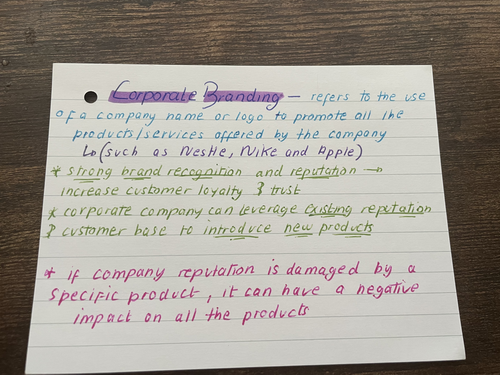 Corporate Branding – refers to the use
of a company name or logo to promote all the
products/services offered by the company
↳ (such as Nestle, Nike and Apple)
* strong brand recognition and reputation →
increase customer loyalty & trust
* corporate company can leverage existing reputation
& customer base to introduce new products
* if company reputation is damaged by a
specific product, it can have a negative
impact on all the products